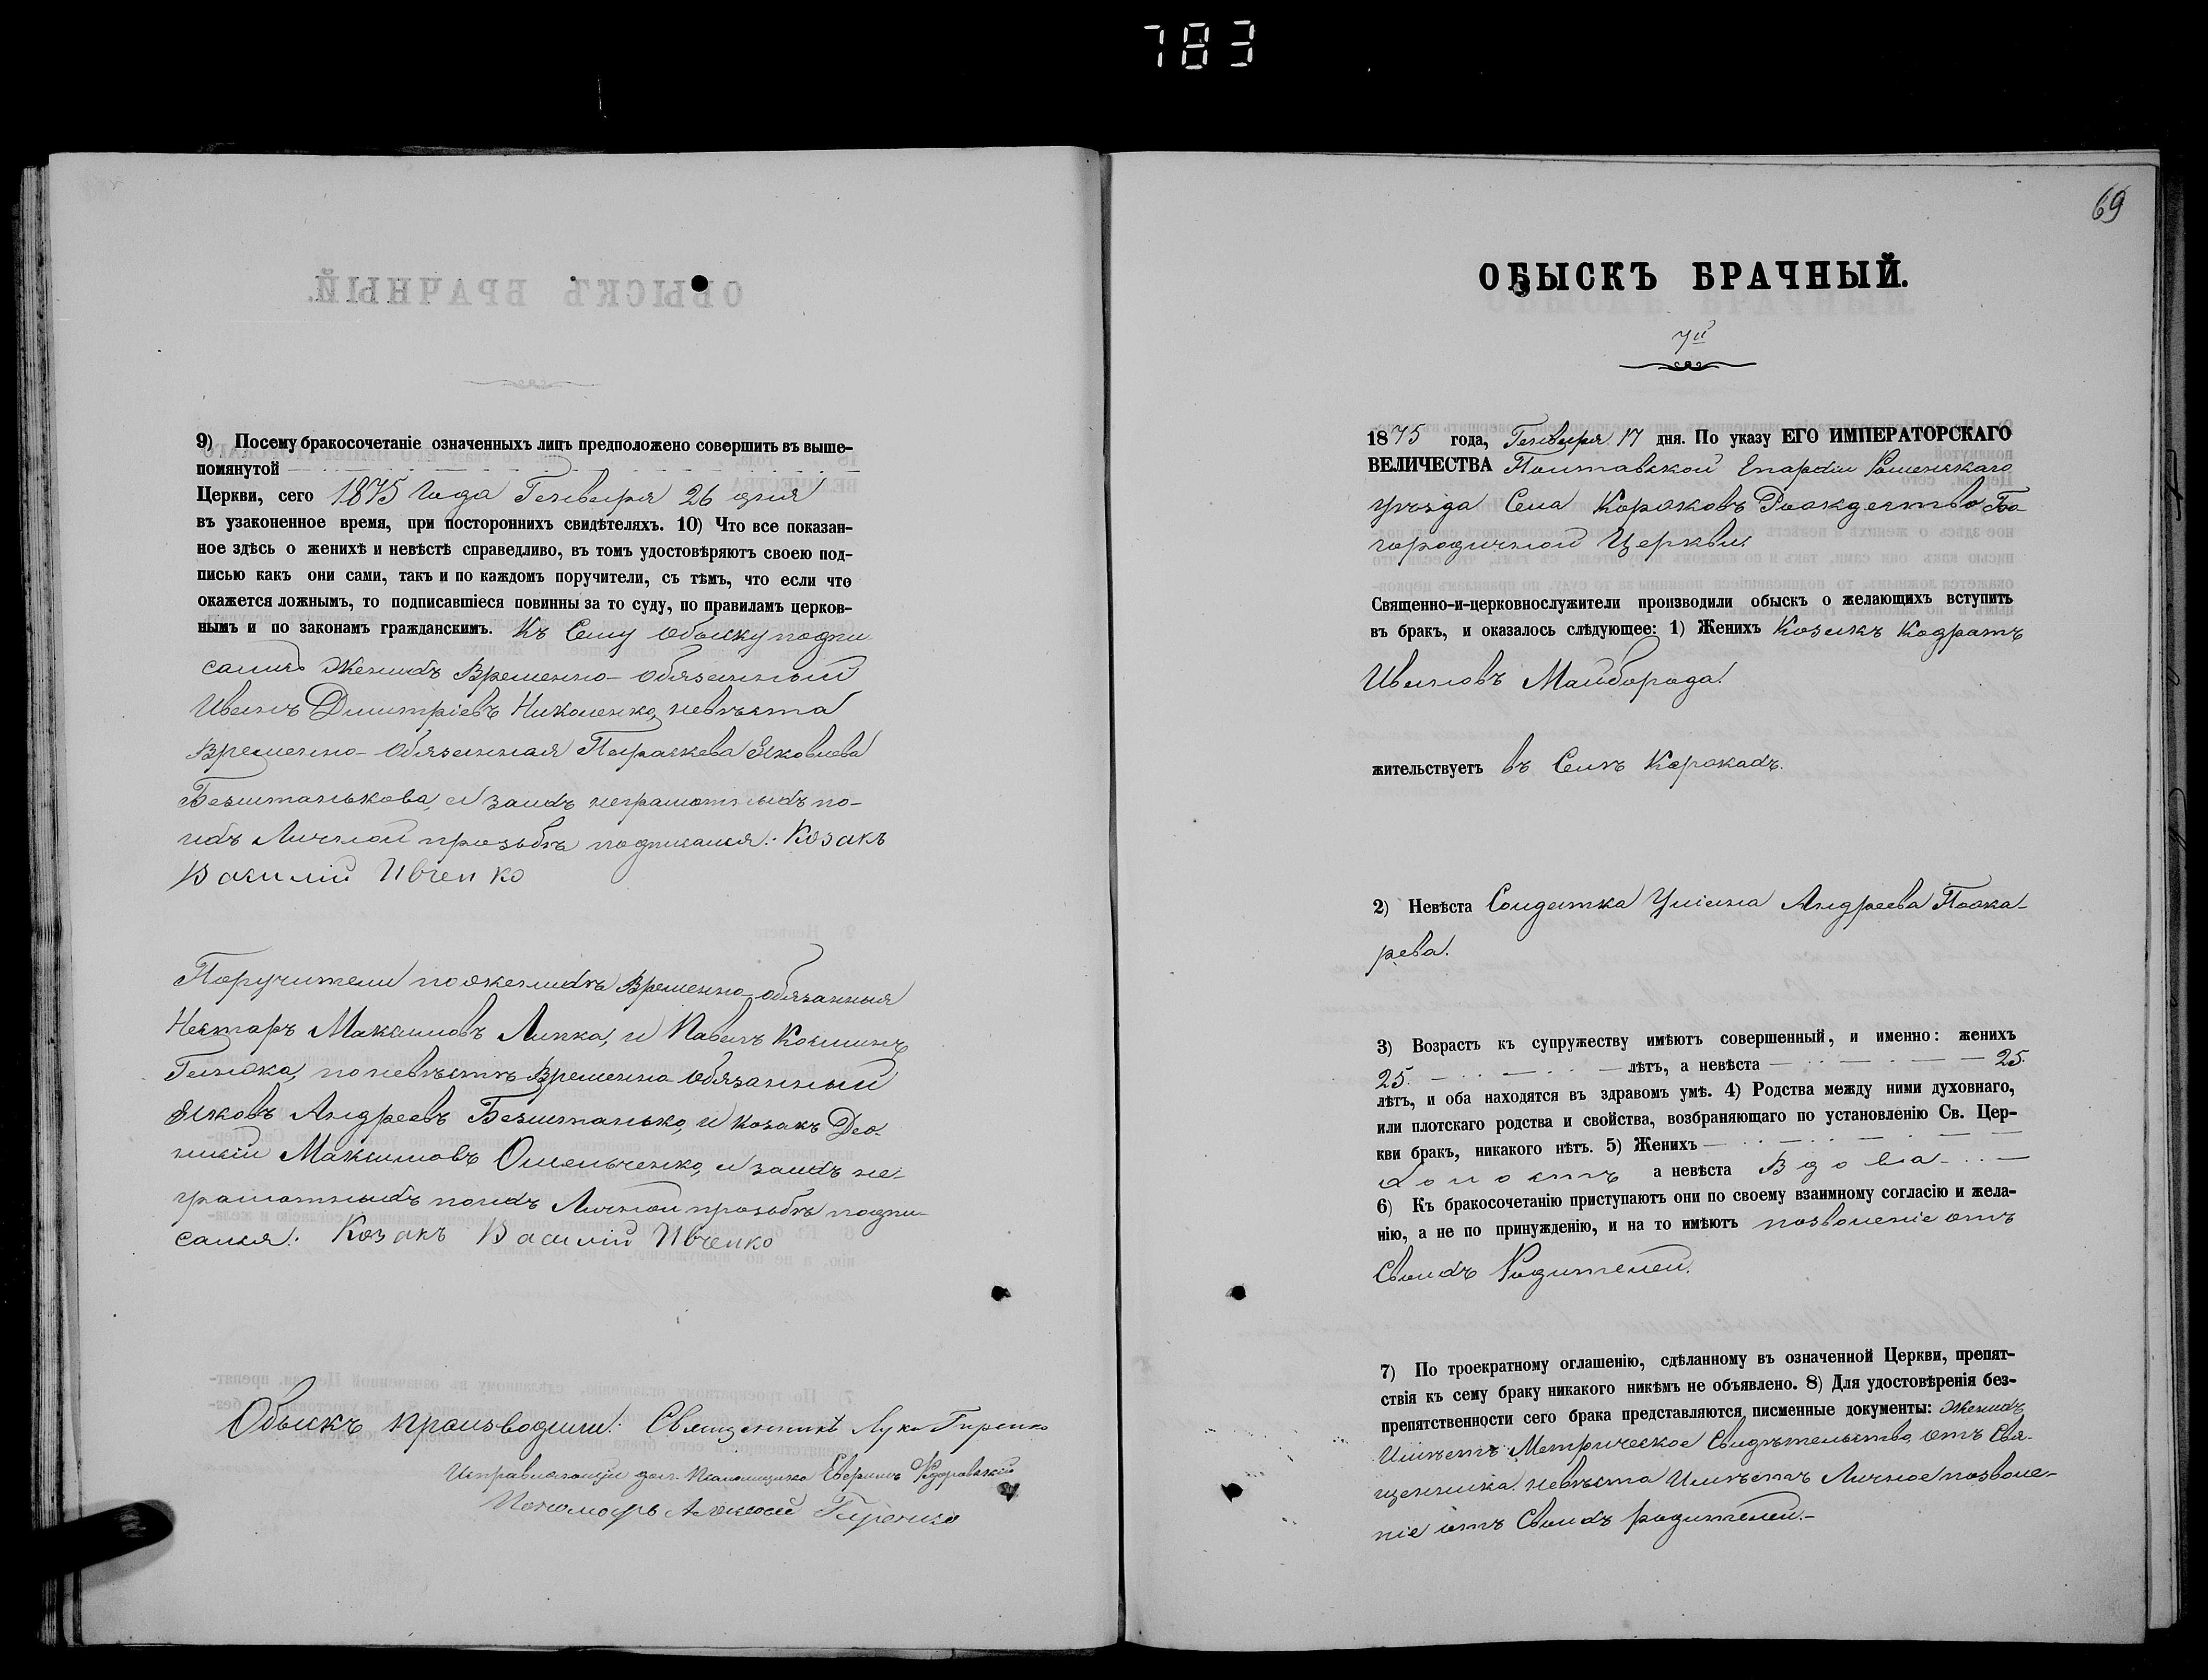 783
9) Посему бракосочетаніе означенныхъ лицъ предположено совершить въ выше-
помянутой
Церкви, сего 1875 Года Генваря 26 дня
въ узаконенное время, при постороннихъ свидѣтеляхъ. 10) Что все показан-
ное здѣсь о женихѣ и невѣстѣ справедливо, въ томъ удостовѣряютъ своею под-
писью какъ они сами, такъ и по каждомъ поручители, съ тѣмъ, что если что
окажется ложнымъ, то подписавшіеся повинны за то суду, по правиламъ церков-
нымъ и по законамъ гражданскимъ. Къ Сему Обыску подпи
сались Женихъ Временно-обязанный
Иванъ Дмитріевъ Николенко, невѣста
Временно-Обязанная Параскева Яковлева
Безштанькова, а заихъ неграмотныхъ по-
ихъ Личной прозьбѣ подписался: Козакъ
Василій Ивченко
Поручители пожениху Временно-обязанныя
Нестаръ Максимовъ Липка, и Павелъ Косминъ
поневѣстѣ Временно обязанный
Яковъ Андреевъ Безштанько, и козакъ Део-
нисій Максимовъ Омельченко, а заихъ не-
грамотныхъ поихъ Личной прозьбѣ подпи-
сался: Козакъ Василій Ивченко
Обыскъ производили: Священникъ Лука Гиренко
Исправляющій долж. Псаломщика
Пономарь Алексей Гиренко
69
ОБЫСКЪ БРАЧНЫЙ.
7й
1875 года, Генваря 17 дня. По указу ЕГО ИМПЕРАТОРСКАГО
ВЕЛИЧЕСТВА Полтавской Епархіи Роменскаго
уѣзда Села Коржовъ Рождество Бо
городичной Церкви
Священно-и-церковнослужители производили обыскъ о желающихъ вступить
въ бракъ, и оказалось слѣдующее: 1) Женихъ Козакъ Кодратъ
Ивановъ Майборода.
жительствуетъ въ Селѣ Коржахъ.
2) Невѣста Солдатка Уліана Андреева Пожа-
рева.
3) Возрастъ къ супружеству имѣютъ совершенный, и именно: женихъ
25. лѣтъ, а невѣста 25.
лѣтъ, и оба находятся въ здравомъ умѣ. 4) Родства между ними духовнаго,
или плотскаго родства и свойства, возбраняющаго по установленію Св. Цер-
кви бракъ, никакого нѣтъ. 5) Женихъ
холостъ а невѣста Вдова
6) Къ бракосочетанію приступаютъ они по своему взаимному согласію и жела-
нію, а не по принужденію, и на то имѣютъ позволеніе отъ
Своихъ Родителей.
7) По троекратному оглашенію, сдѣланному въ означенной Церкви, препят-
ствія къ сему браку никакого никѣмъ не объявлено. 8) Для удостовѣренія без-
препятственности сего брака представляются писменные документы: Женихъ
Имѣетъ Метрическое Свидѣтельство, отъ Свя-
щенника. невѣста Имѣетъ Личное позволе-
ніе отъ Своихъ родителей.-